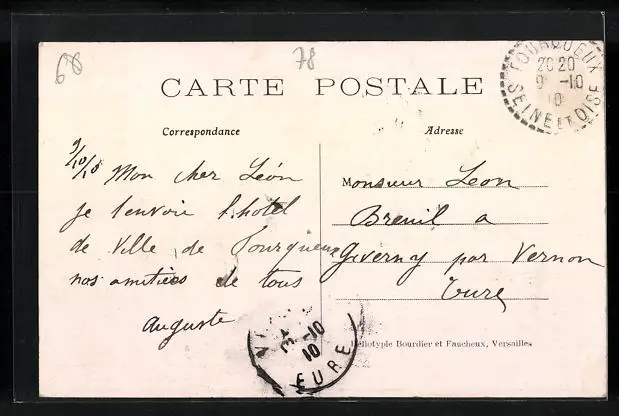 68
78
CARTE POSTALE
Correspondance
Adresse
FOURQUEUX
20 20
9 -10
10
SEINE ET OISE
9/10/10
Mon cher Léon
je t'envoie l'hotel
de Ville de Fourqueux
nos amitiés de tous
Auguste
Monsieur Leon
Breuil a
Giverny par Vernon
Eure
10 -10
10
EURE
Héliotypie Bourdier et Faucheux, Versailles